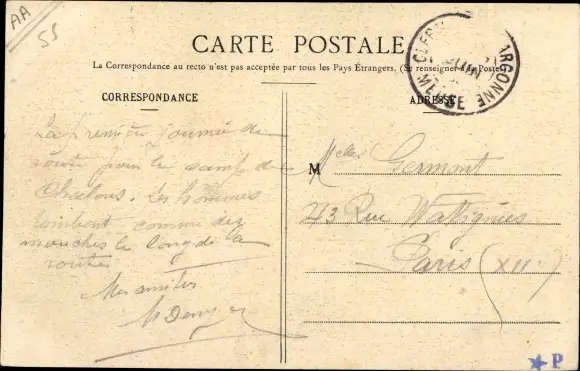 AA
55
CARTE POSTALE
La Correspondance au recto n'est pas acceptée par tous les Pays Étrangers. (Se renseigner à la Poste)
CORRESPONDANCE
ADRESSE
CLER ARGONNE
MEUSE
La Première Journée de
route pour le camp de
Chalons. Les hommes
tombent comme des
mouches le long de la
route
Mes amitiés
M Melles Germont
43 Rue Wattignies
Paris (XII
P